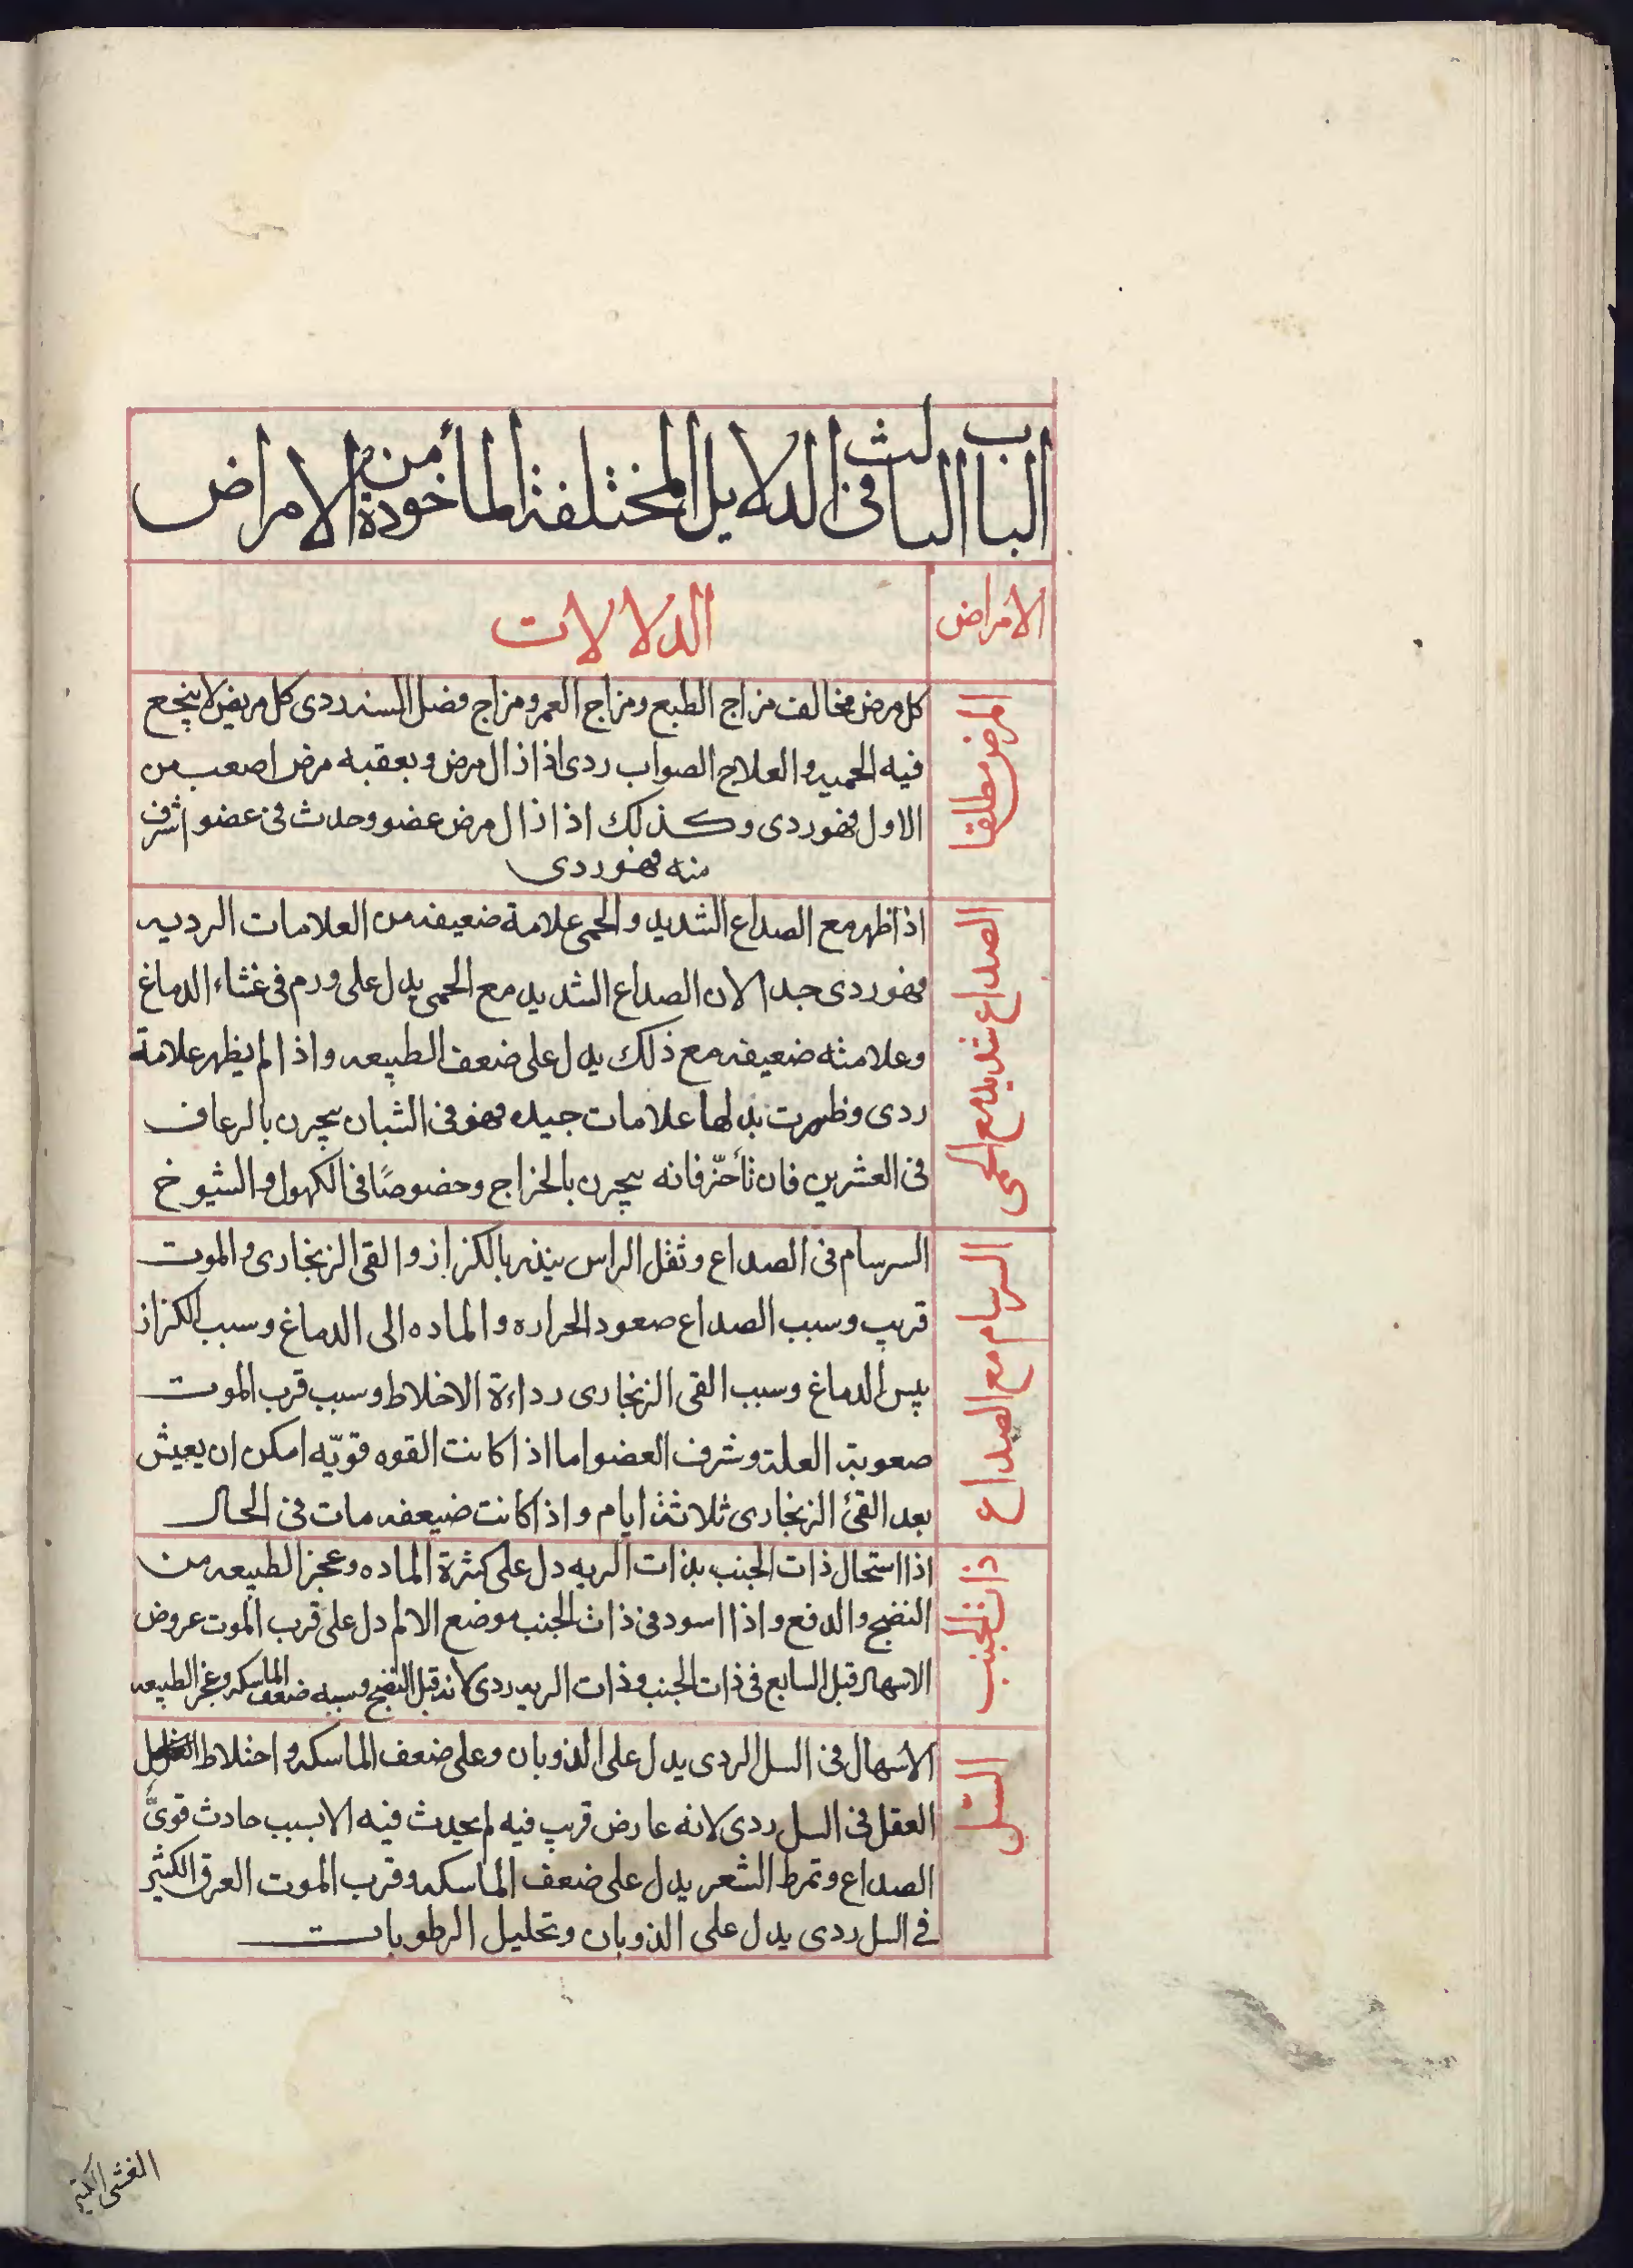 الباب الثالث فى الدلايل المختلفة المأخوذة من الامراض
الامراض
الدلالات
المرض مطلقا
كل مرض مخالف مزاج الطبع ومزاج العمر ومزاج فضل السنه ردى كل مريض لا ينجع
فيه الحميه والعلاج الصواب ردى اذا زال مرض وبعقبه مرض اصعب من
الاول فهو ردى وكذلك اذا زال مرض عضو وحدث فى عضو اشرف
منه فهو ردى
الصداع شديد مع الحمى
اذا ظهر مع الصداع الشديد والحمى علامة ضعيفه من العلامات الرديه
فهو ردى جدا لان الصداع الشديد مع الحمى يدل على ورم فى غشاء الدماغ
وعلامته ضعيفه مع ذلك يدل على ضعف الطبيعه واذا لم يظهر علامة
ردى وظهرت بدلها علامات جيده فهو فى الشبان يبحرن بالرعاف
فى العشرين فان تأخّر فانه يبحرن بالخراج وخصوصًا فى الكهول والشيوخ
السرسام مع الصداع
السرسام فى الصداع وثقل الراس ينذر بالكزاز والقى الزنجارى والموت
قريب وسبب الصداع صعود الحراره والماده الى الدماغ وسبب الكزاز
يبس الدماغ وسبب القى الزنجارى رداءة الاخلاط وسبب قرب الموت
صعوبة العلة وشرف العضو اما اذا كانت القوه قويّه امكن ان يعيش
بعد القئ الزنجارى ثلاثة ايام واذا كانت ضعيفه مات فى الحال
ذات الجنب
اذا استحال ذات الجنب بذات الريه دل على كثرة الماده وعجز الطبيعه من
النضج والدفع واذا اسود فى ذات الجنب موضع الالم دل على قرب الموت عروض
الاسهال قبل السابع فى ذات الجنب وذات الريه ردى لانه قبل النضج وسببه ضعف الماسكه وعجز الطبيعه
السّل
الاسهال فى السل الردى يدل على الذوبان وعلى ضعف الماسكه واختلاط
العقل فى السل ردى لانه عارض قريب فيه لم يحدث فيه الا بسبب حادث قوىّ
الصداع وتمرط الشعر يدل على ضعف الماسكه وقرب الموت العرق الكثير
فى السل ردى يدل على الذوبان وتحليل الرطوبات
الغشى الكثير